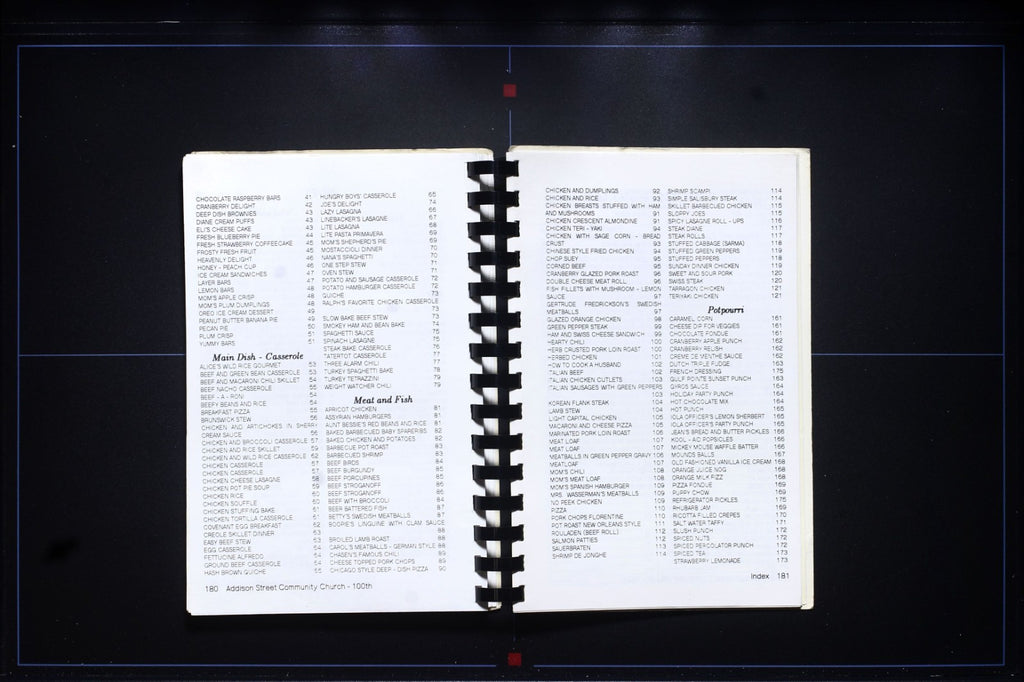 CHOCOLATE RASPBERRY BARS 41
CRANBERRY DELIGHT 42
DEEP DISH BROWNIES 43
DIANE CREAM PUFFS 43
ELI'S CHEESE CAKE 43
FRESH BLUEBERRY PIE 44
FRESH STRAWBERRY COFFEECAKE 45
FROSTY FRESH FRUIT 45
HEAVENLY DELIGHT 46
HONEY - PEACH CUP 46
ICE CREAM SANDWICHES 47
LAYER BARS 47
LEMON BARS 48
MOM'S APPLE CRISP 48
MOM'S PLUM DUMPLINGS 48
OREO ICE CREAM DESSERT 49
PEANUT BUTTER BANANA PIE 49
PECAN PIE 50
PLUM CRISP 51
YUMMY BARS 51
Main Dish - Casserole
ALICE'S WILD RICE GOURMET 53
BEEF AND GREEN BEAN CASSEROLE 53
BEEF AND MACARONI CHILI SKILLET 54
BEEF NACHO CASSEROLE 55
BEEF - A - RONI 54
BEEFY BEANS AND RICE 54
BREAKFAST PIZZA 55
BRUNSWICK STEW 56
CHICKEN AND ARTICHOKES IN SHERRY
CREAM SAUCE
CHICKEN AND BROCCOLI CASSEROLE 57
CHICKEN AND RICE SKILLET 59
CHICKEN AND WILD RICE CASSEROLE 62
CHICKEN CASSEROLE 57
CHICKEN CASSEROLE 57
CHICKEN CHEESE LASAGNE 58
CHICKEN POT PIE SOUP 59
CHICKEN RICE 60
CHICKEN SOUFFLE 60
CHICKEN STUFFING BAKE 61
CHICKEN TORTILLA CASSEROLE 61
COVENANT EGG BREAKFAST 62
CREOLE SKILLET DINNER 63
EASY BEEF STEW 63
EGG CASSEROLE 64
FETTUCINE ALFREDO 64
GROUND BEEF CASSEROLE 64
HASH BROWN QUICHE
HUNGRY BOYS' CASSEROLE 65
JOE'S DELIGHT 74
LAZY LASAGNA 66
LINEBACKER'S LASAGNE 67
LITE LASAGNA 68
LITE PASTA PRIMAVERA 69
MOM'S SHEPHERD'S PIE 69
MOSTACCIOLI DINNER 70
NANA'S SPAGHETTI 70
ONE STEP STEW 71
OVEN STEW 71
POTATO AND SAUSAGE CASSEROLE 72
POTATO HAMBURGER CASSEROLE 72
QUICHE 73
RALPH'S FAVORITE CHICKEN CASSEROLE
73
SLOW BAKE BEEF STEW 73
SMOKEY HAM AND BEAN BAKE 74
SPAGHETTI SAUCE 75
SPINACH LASAGNE 75
STEAK BAKE CASSEROLE 76
TATERTOT CASSEROLE 77
THREE ALARM CHILI 77
TURKEY SPAGHETTI BAKE 78
TURKEY TETRAZZINI 79
WEIGHT WATCHER CHILI 79
Meat and Fish
APRICOT CHICKEN 81
ASSYRIAN HAMBURGERS 81
AUNT BESSIE'S RED BEANS AND RICE 81
BAKED BARBECUED BABY SPARERIBS 82
BAKED CHICKEN AND POTATOES 82
BARBECUE POT ROAST 83
BARBECUED SHRIMP 83
BEEF BIRDS 84
BEEF BURGUNDY 85
BEEF PORCUPINES 85
BEEF STROGANOFF 86
BEEF STROGANOFF 86
BEEF WITH BROCCOLI 84
BEER BATTERED FISH 87
BETTY'S SWEDISH MEATBALLS 87
BOOPIE'S LINGUINE WITH CLAM SAUCE
88
BROILED LAMB ROAST 88
CAROL'S MEATBALLS - GERMAN STYLE 88
CHASEN'S FAMOUS CHILI 89
CHEESE TOPPED PORK CHOPS 89
CHICAGO STYLE DEEP - DISH PIZZA 90
180 Addison Street Community Church - 100th
CHICKEN AND DUMPLINGS 92
CHICKEN AND RICE 93
CHICKEN BREASTS STUFFED WITH HAM
AND MUSHROOMS 91
CHICKEN CRESCENT ALMONDINE 91
CHICKEN TERI - YAKI 94
CHICKEN WITH SAGE CORN - BREAD
CRUST 93
CHINESE STYLE FRIED CHICKEN 94
CHOP SUEY 95
CORNED BEEF 95
CRANBERRY GLAZED PORK ROAST 96
DOUBLE CHEESE MEAT ROLL 96
FISH FILLETS WITH MUSHROOM - LEMON
SAUCE 97
GERTRUDE FREDRICKSON'S SWEDISH
MEATBALLS 97
GLAZED ORANGE CHICKEN 98
GREEN PEPPER STEAK 99
HAM AND SWISS CHEESE SANDWICH 99
HEARTY CHILI 100
HERB CRUSTED PORK LOIN ROAST 100
HERBED CHICKEN 101
HOW TO COOK A HUSBAND 102
ITALIAN BEEF 102
ITALIAN CHICKEN CUTLETS 103
ITALIAN SAUSAGES WITH GREEN PEPPERS
103
KOREAN FLANK STEAK 104
LAMB STEW 104
LIGHT CAPITAL CHICKEN 105
MACARONI AND CHEESE PIZZA 105
MARINATED PORK LOIN ROAST 106
MEAT LOAF 106
MEAT LOAF 107
MEATBALLS IN GREEN PEPPER GRAVY 106
MEATLOAF 107
MOM'S CHILI 108
MOM'S MEAT LOAF 108
MOM'S SPANISH HAMBURGER 109
MRS. WASSERMAN'S MEATBALLS 109
NO PEEK CHICKEN 109
PIZZA 110
PORK CHOPS FLORENTINE 110
POT ROAST NEW ORLEANS STYLE 111
ROULADEN (BEEF ROLL) 112
SALMON PATTIES 112
SAUERBRATEN 113
SHRIMP DE JONGHE 114
SHRIMP SCAMPI 114
SIMPLE SALISBURY STEAK 114
SKILLET BARBECUED CHICKEN 115
SLOPPY JOES 115
SPICY LASAGNE ROLL - UPS 116
STEAK DIANE 117
STEAK ROLLS 117
STUFFED CABBAGE (SARMA) 118
STUFFED GREEN PEPPERS 119
STUFFED PEPPERS 118
SUNDAY DINNER CHICKEN 119
SWEET AND SOUR PORK 120
SWISS STEAK 120
TARRAGON CHICKEN 121
TERIYAKI CHICKEN 121
Potpourri
CARAMEL CORN 161
CHEESE DIP FOR VEGGIES 161
CHOCOLATE FONDUE 161
CRANBERRY APPLE PUNCH 162
CRANBERRY RELISH 162
CREME DE MENTHE SAUCE 162
DUTCH TRIPLE FUDGE 163
FRENCH DRESSING 175
GULF POINTE SUNSET PUNCH 163
GYROS SAUCE 164
HOLIDAY PARTY PUNCH 164
HOT CHOCOLATE MIX 164
HOT PUNCH 165
IOLA OFFICER'S LEMON SHERBERT 165
IOLA OFFICER'S PARTY PUNCH 165
JEAN'S BREAD AND BUTTER PICKLES 166
KOOL - AID POPSICLES 166
MICKEY MOUSE WAFFLE BATTER 166
MOUNDS BALLS 167
OLD FASHIONED VANILLA ICE CREAM 168
ORANGE JUICE NOG 168
ORANGE MILK FIZZ 168
PIZZA FONDUE 169
PUPPY CHOW 169
REFRIGERATOR PICKLES 175
RHUBARB JAM 169
RICOTTA FILLED CREPES 170
SALT WATER TAFFY 171
SLUSH PUNCH 172
SPICED NUTS 172
SPICED PERCOLATOR PUNCH 172
SPICED TEA 173
STRAWBERRY LEMONADE 173
Index 181